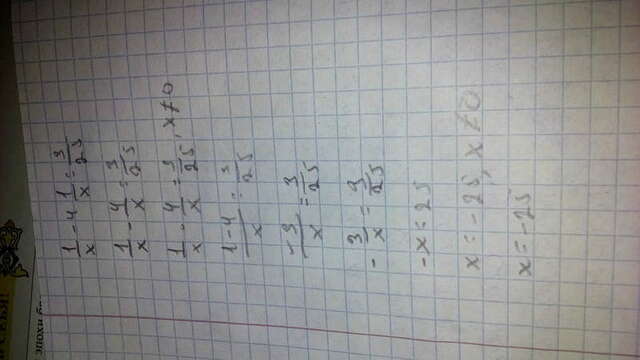 1/x - 4 1/x = 3/25
1/x - 4/x = 3/25
1/x - 4/x = 3/25, x≠0
1-4/x = 3/25
-3/x = 3/25
- 3/x = 3/25
-x = 25
x = -25, x≠0
x = -25
эпохи